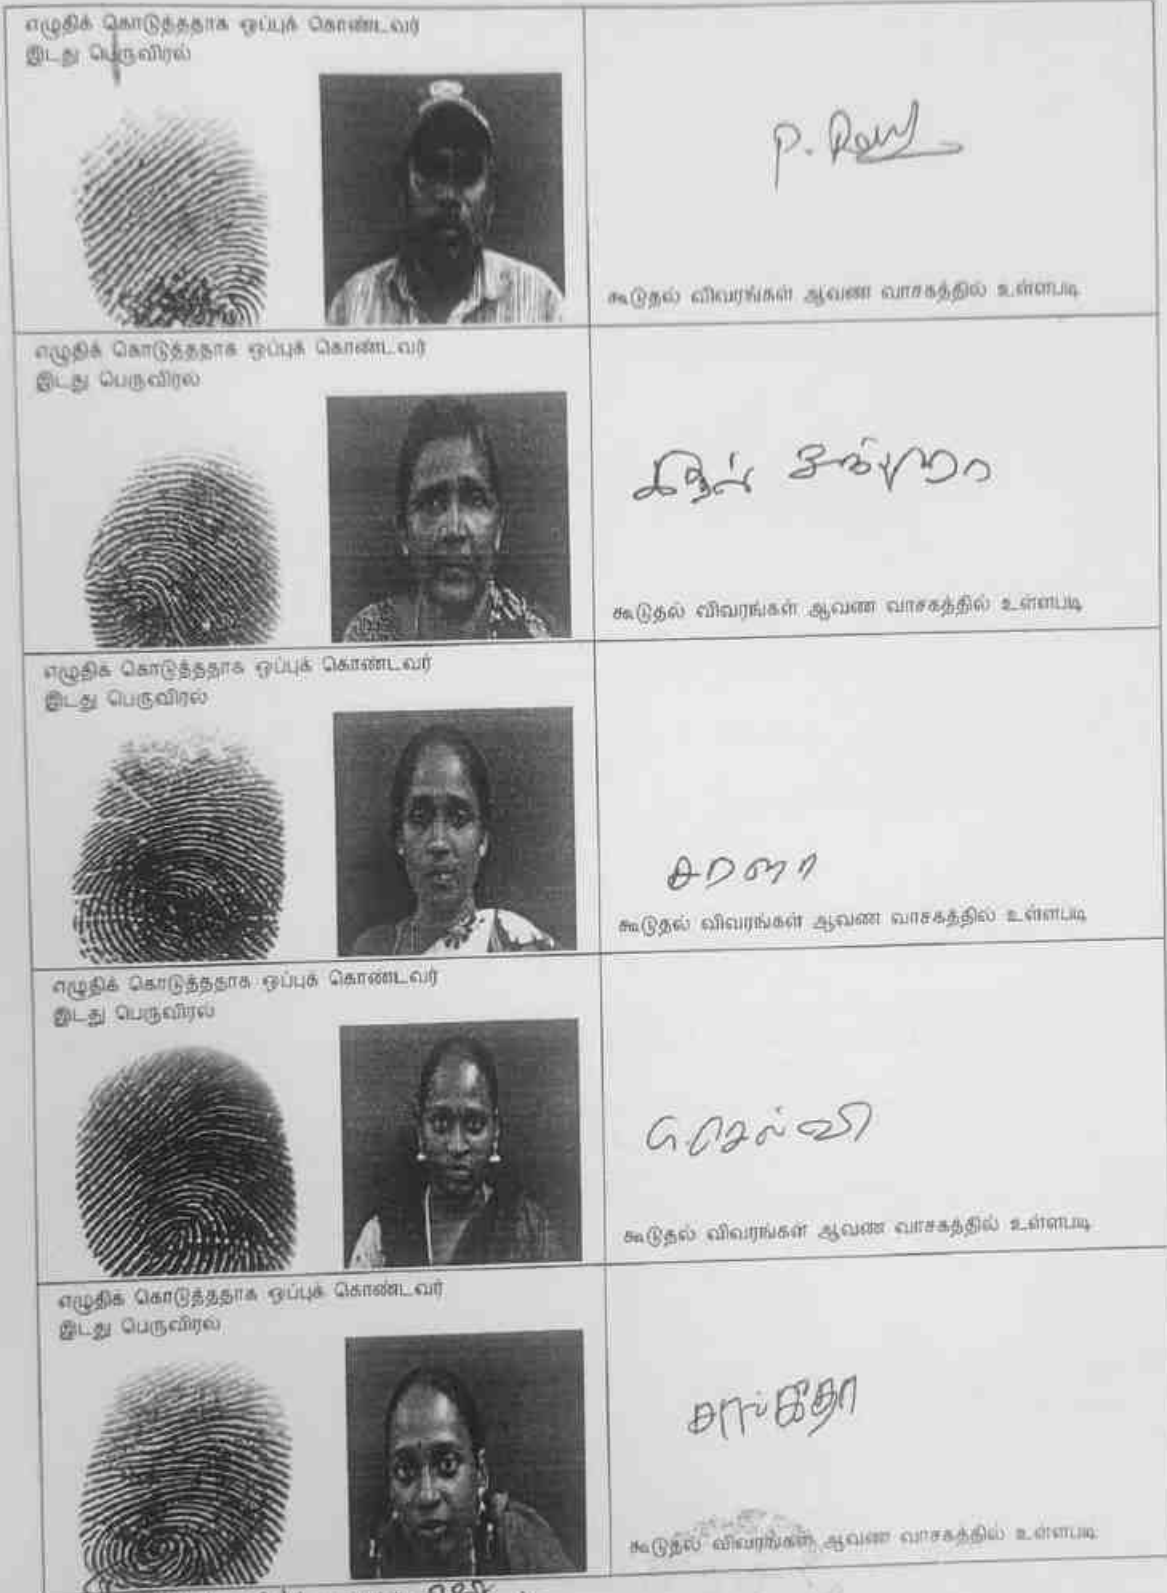 எழுதிக் கொடுத்ததாக ஒப்புக் கொண்டவர்
இடது பெருவிரல்
P.
கூடுதல் விவரங்கள் ஆவண வாசகத்தில் உள்ளபடி
எழுதிக் கொடுத்ததாக ஒப்புக் கொண்டவர்
இடது பெருவிரல்
கூடுதல் விவரங்கள் ஆவண வாசகத்தில் உள்ளபடி
எழுதிக் கொடுத்ததாக ஒப்புக் கொண்டவர்
இடது பெருவிரல்
சரளா
கூடுதல் விவரங்கள் ஆவண வாசகத்தில் உள்ளபடி
எழுதிக் கொடுத்ததாக ஒப்புக் கொண்டவர்
இடது பெருவிரல்
கூடுதல் விவரங்கள் ஆவண வாசகத்தில் உள்ளபடி
எழுதிக் கொடுத்ததாக ஒப்புக் கொண்டவர்
இடது பெருவிரல்
கூடுதல் விவரங்கள் ஆவண வாசகத்தில் உள்ளபடி